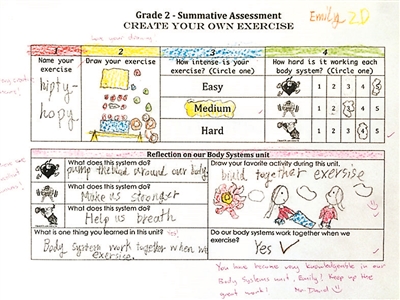 Grade 2 - Summative Assessment
Emily 2.D
CREATE YOUR OWN EXERCISE
love your drawing
1 2 3 4
Name your exercise
Draw your exercise
How intense is your exercise? (Circle one)
How hard is it working each body system? (Circle one)
hipty-
hopy
Easy
1 2 3 4 5
Medium
1 2 3 4 5
Hard
1 2 3 4 5
Reflection on our Body Systems unit
What does this system do?
pump the around our body
Draw your favorite activity during this unit.
build together exersise
What does this system do?
Make us stronger
What does this system do?
Help us breath
What is one thing you learned in this unit?
Body system work together when we
exersise
Do our body systems work together when we exercise?
Yes
You have become very knowledgeable in our
Body Systems unit, Emily! Keep up the
great work! Mr. David